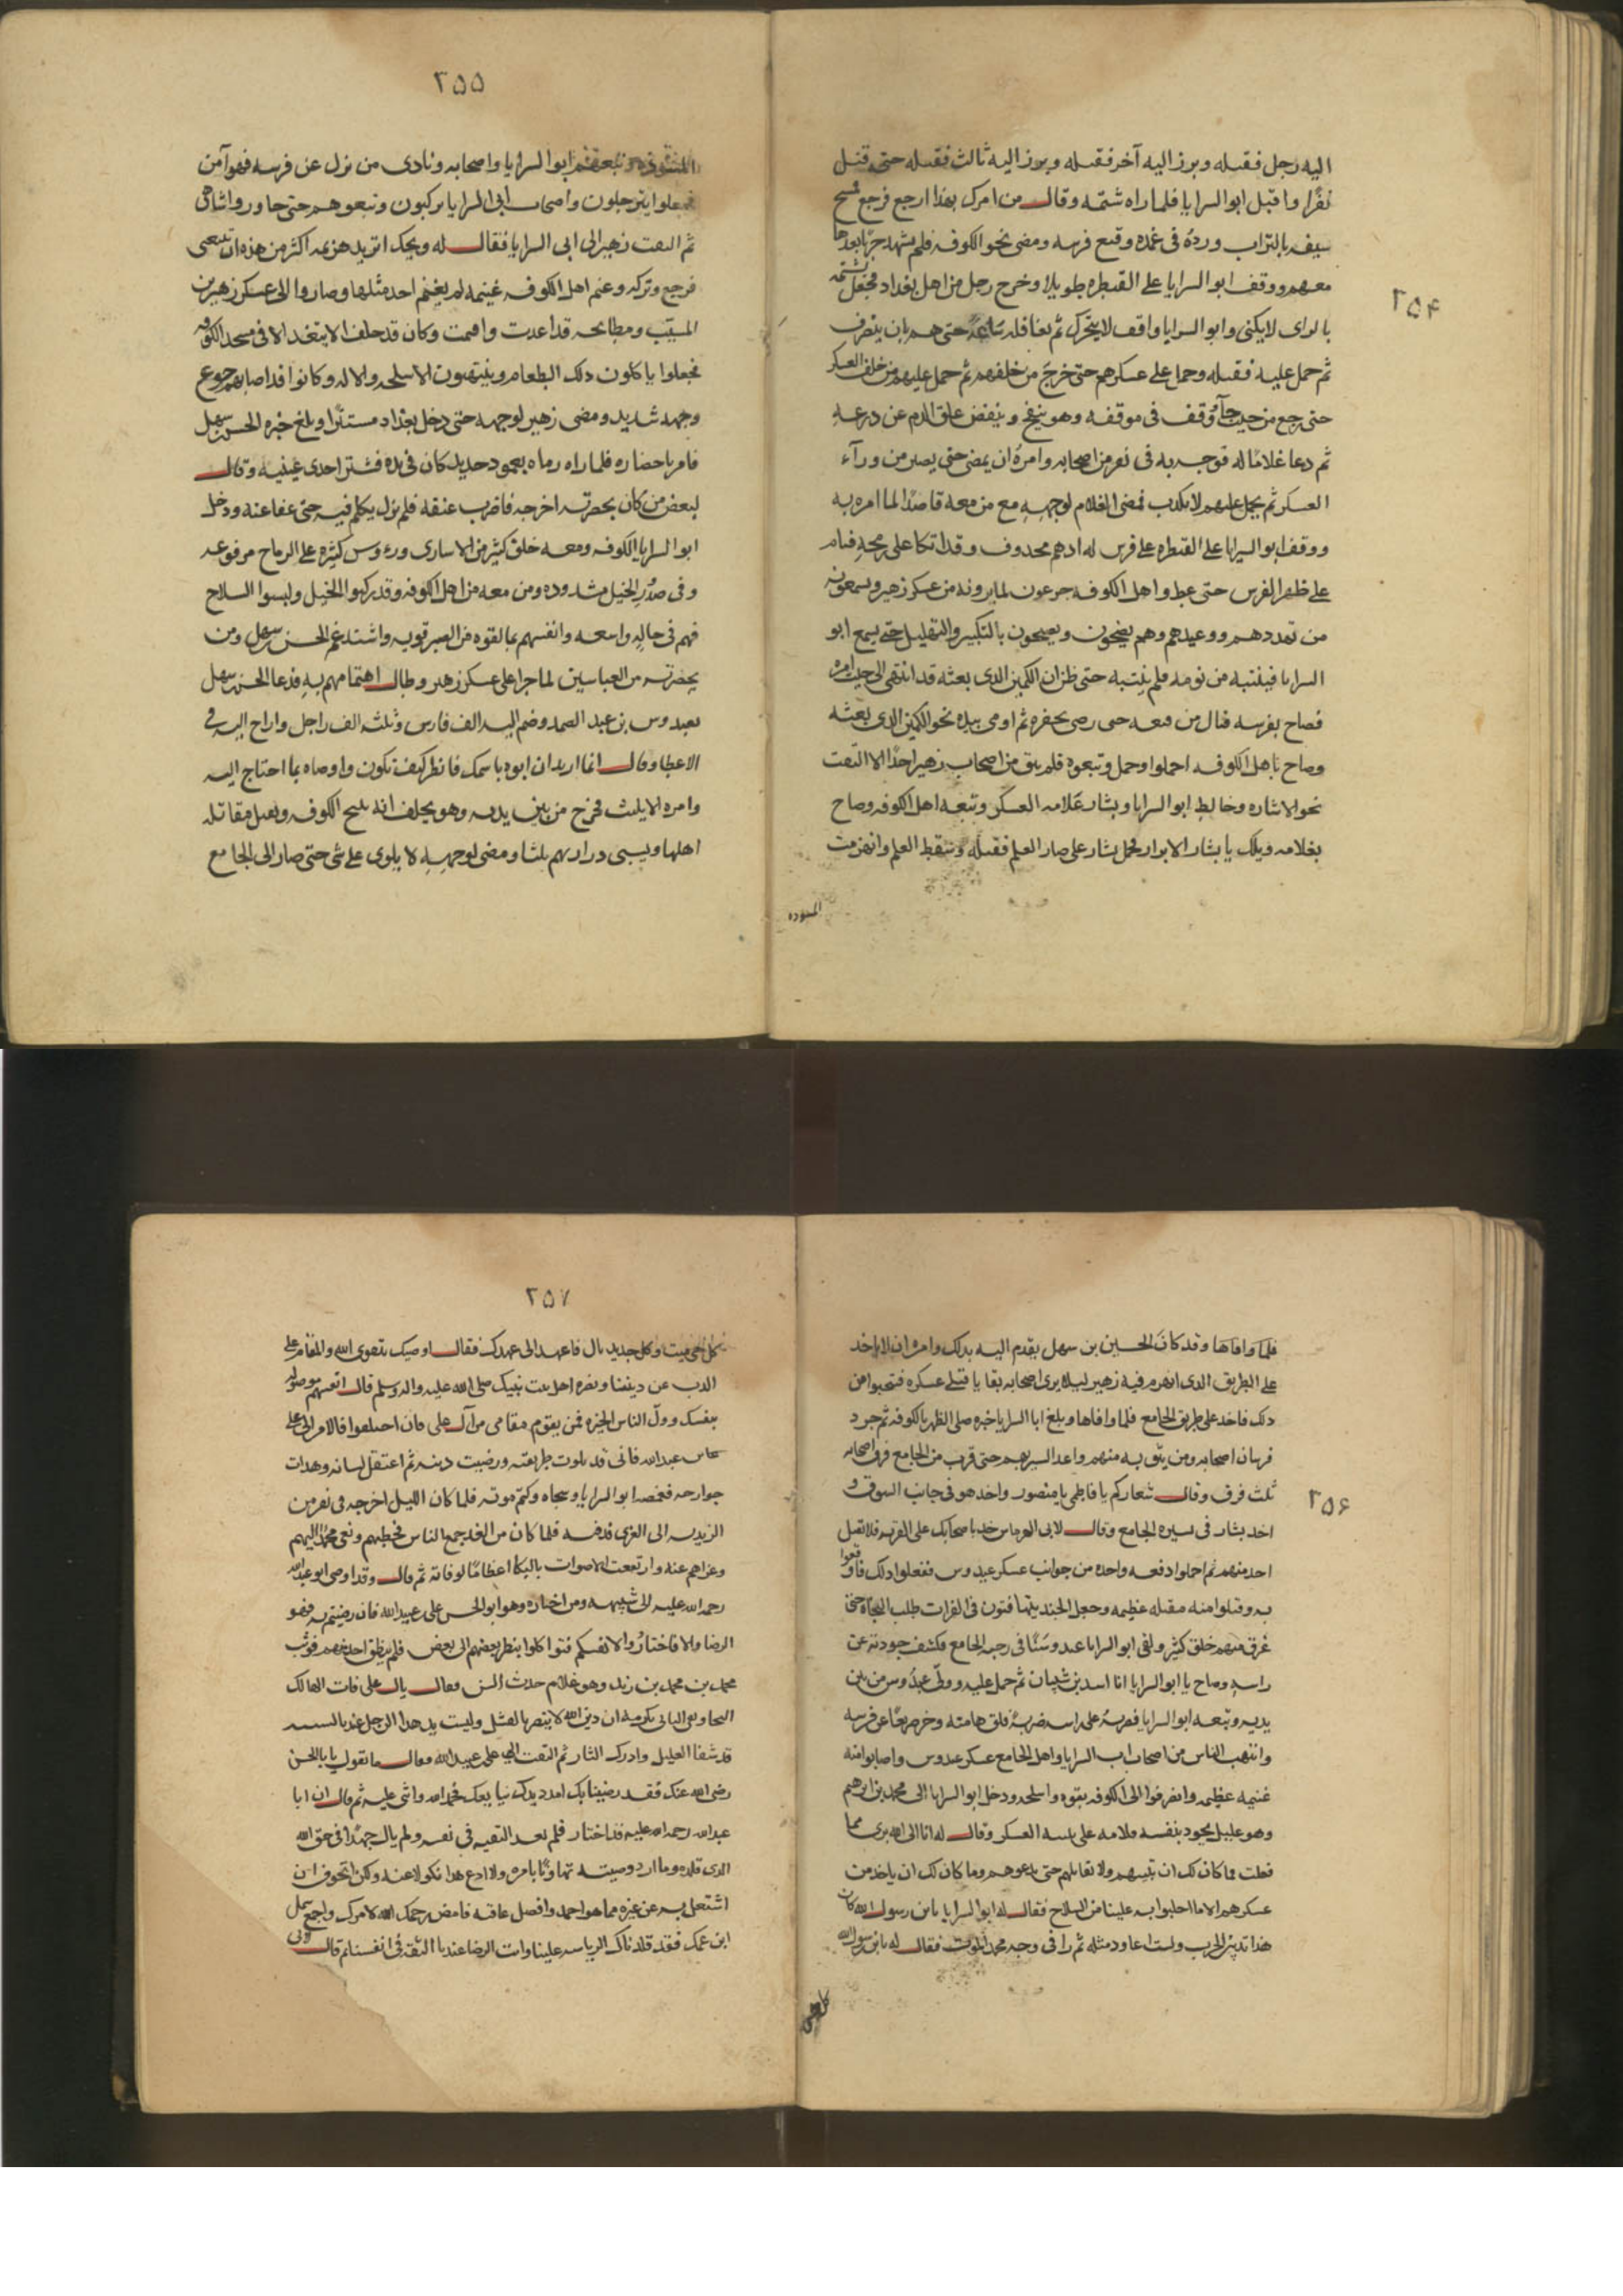 ٢٥٤
اليه رجل فقتله وبرز اليه آخر فقتله وبرز اليه ثالث فقتله حتى قتل
نفرا واقبل ابو السرايا فلما راه شتمه وقال من امرك بهذا ارجع فرجع فمسح
سيفه بالتراب ورده فى غمده وقنع فرسه ومضى نحو الكوفه فلم يشهد حربا بعدها
معهم ووقف ابو السرايا على القنطره طويلا وخرج رجل من اهل بغداد فجعل يشتمه
بالزاى لا يكنى وابو السرايا واقف لا يتحرك ثم تغافله ساعة حتى هم بان ينصرف
ثم حمل عليه فقتله وحمل على عسكرهم حتى خرج من خلفهم ثم حمل عليهم من خلف العسكر
حتى رجع من حيث جآء ووقف فى موقفه وهو ينفخ وينفض علق الدم عن درعه
ثم دعا غلامًا له فوجه به فى نفر من اصحابه وامره ان يمضى حتى يصير من ورآء
العسكر ثم يحمل عليهم لا يكذب فمضى الغلام لوجهه مع من معه قاصدًا لما امره به
ووقف ابو السرايا على القنطره على فرس له ادهم محذوف وقد اتكا على رمحه فنام
على ظهر الفرس حتى غط واهل الكوفه جزعون لما يرونه من عسكر زهير ويسمعونه
من تهددهم ووعيدهم وهم يضجون ويصيحون بالتكبير والتهليل حتى يسمع ابو
السرايا فينتبه من نومه فلم ينتبه حتى ظن ان الكمين الذى بعثه قد انتهى الى حيث امره
فصاح بفرسه فنال من قنعه حتى رضى بحفزه ثم اومى بيده نحو الكمين الذى بعثه
وصاح باهل الكوفه احملوا وحمل وتبعوه فلم يبق من اصحاب زهير احدًا الا التفت
نحو الاشاره وخالط ابو السرايا وبشار غلامه العسكر وتبعه اهل الكوفه وصاح
بغلامه ويلك يا بشار الا براز فحمل بشار على صاحب العلم فقتله وسقط العلم وانهزمت
المسوده
٢٥٥
المسوده وتبعهم ابو السرايا واصحابه ونادى من نزل عن فرسه فهو آمن
فجعلوا يترجلون واصحاب ابى السرايا يركبون وتبعوهم حتى جاوروا شاهى
ثم التفت زهير الى ابى السرايا فقال له ويحك اتريد هزيمه اكثر من هذه ان تتبعنى
فرجع وتركه وغنم اهل الكوفه غنيمه لم يغنم احد مثلها وصاروا الى عسكر زهير بن
المسيّب ومطابخه قد اعدت واقيمت وكان قد حلف الا يتغدا الا فى مسجد الكوفه
فجعلوا ياكلون ذلك الطعام وينتهبون الاسلحه والاله وكانوا قد اصابهم جوع
وجهد شديد ومضى زهير لوجهه حتى دخل بغداد مستترا وبلغ خبره الحسن بن سهل
فامر باحضاره فلما راه رماه بعمود حديد كان فى يده فشتر احدى عينيه وقال
لبعض من كان بحضرته اخرجه فاضرب عنقه فلم يزل يكلم فيه حتى عفا عنه ودخل
ابو السرايا الكوفه ومعه خلق كثير من الاسارى ورؤوس كثيره على الرماح مرفوعه
وفى صدر الخيل مشدوده ومن معه من اهل الكوفه وقد ركبوا الخيل ولبسوا السلاح
فهم فى حاله واسعه وانفسهم بما لقوه من النصر قويه واشتد غم الحسن بن سهل ومن
بحضرته من العباسيين لما جرا على عسكر زهير وطال اهتمامهم به فدعا الحسن بن سهل
بعبدوس بن عبد الصمد وضم اليه الف فارس وثلثه الف راجل وازاح اليه فى
الاعطا وقال انما اريد ان انوه باسمك فانظر كيف تكون واوصاه بما احتاج اليه
وامره الا يلبث فخرج من بين يديه وهو يحلف انه يبيح الكوفه ويقتل مقاتله
اهلها ويسبى ذراريهم ثلثا ومضى لوجهه لا يلوى على شى حتى صار الى الجامع
٢٥٦
فلما وافاها وقد كان الحسين بن سهل يقدم اليه بذلك وامره ان لا ياخذ
على الطريق الذى انهزم فيه زهير ليلا يرى اصحابه بقايا قتلى عسكره فيجبنوا من
ذلك فاخذ على طريق الجامع فلما وافاها وبلغ ابا السرايا خبره صلى الظهر بالكوفه ثم جرد
فرسان اصحابه ومن يثق به منهم واغذ السير بهم حتى قرب من الجامع فرق اصحابه
ثلث فرق وقال شعاركم يا فاطمى يا منصور واخذ هو فى جانب السوق و
اخذ بشار فى سيره الجامع وقال لابى الهرماس خذ باصحابك على القريه فلا تفل
احد منهم ثم احملوا دفعه واحده من جوانب عسكر عبدوس ففعلوا ذلك فاوقعوا
به وقتلوا منه مقتله عظيمه وجعل الجند يتهافتون فى الفرات طلب النجاة حتى
غرق منهم خلق كثير ولقى ابو السرايا عبدوسًا فى رحبة الجامع فكشف خوذته عن
راسه وصاح يا ابو السرايا انا اسد بنى شيبان ثم حمل عليه وولى عبدوس من بين
يديه وتبعه ابو السرايا فضربه على راسه ضربة فلق هامته وخر صريعًا عن فرسه
وانتهب الناس من اصحاب ابى السرايا واهل الجامع عسكر عبدوس واصابوا منه
غنيمه عظيمه وانصرفوا الى الكوفه بقوه واسلحه ودخل ابو السرايا الى محمد بن ابرهيم
وهو عليل يجود بنفسه فلامه على تبييته العسكر وقال له انا الى الله برى مما
فعلت فما كان لك ان تبيتهم ولا تقاتلهم حتى تدعوهم وما كان لك ان ياخذ من
عسكرهم الا ما اجلبوا به علينا من السلاح فقال له ابو السرايا يابن رسول الله كان
هذا تدبير الحرب ولست اعاود مثله ثم راى فى وجه محمد الموت فقال له يابن رسول الله
كل حى
٢٥٧
كل حى ميت وكل جديد بال فاعهد الى عهدك فقال اوصيك بتقوى الله والمقام على
الذب عن ديننا ونصره اهل بيت نبيك صلى الله عليه واله وسلم قال انفسهم موصوله
بنفسك وولّ الناس الخيره فمن يقوم مقامى من آل على فان اختلفوا فالامر الى على
بن عبدالله فانى قد بلوت طريقته ورضيت دينه ثم اعتقل لسانه وهدات
جوارحه فغمضه ابو السرايا وسجاه وكتم موته فلما كان الليل اخرجه فى نفر من
الزيديه الى الغرى فدفنه فلما كان من الغد جمع الناس فخطبهم ونعى محمدًا اليهم
وعزاهم عنه وارتفعت الاصوات بالبكا اعظامًا لوفاته ثم قال وقد اوصى ابو عبدالله
رحمة الله عليه الى شبيهه ومن اختاره وهو ابو الحسن على بن عبيد الله فان رضيتم به فهو
الرضا والا فاختاروا لانفسكم فتواكلوا ينظر بعضهم الى بعض فلم ينطق احد منهم فوثب
محمد بن محمد بن زيد وهو غلام حدث السن فقال يال على فات الهالك
النجا وبقى الثانى بكرمه ان دين الله لا ينصر بالفشل وليست يد هذا الرجل عندنا بسيئه
قد شفا الغليل وادرك الثار ثم التفت الى على بن عبيد الله فقال ما تقول يا با الحسن
رضى الله عنك فقد رضينا بك امدد يدك نبايعك فحمد الله واثنى عليه ثم قال ان ابا
عبدالله رحمة الله عليه قد اختار فلم يعد الثقه فى نفسه ولم يال جهدًا فى حق الله
الذى قلده وما ارد وصيته تهاونًا بامره ولا ادع هذا نكولا عنه ولكن اتخوف ان
اشتغل به عن غيره مما هو احمد وافضل عاقبه فامض رحمك الله لامرك واجمع شمل
ابن عمك فقد قلدناك الرياسه علينا وانت الرضا عندنا الثقه فى انفسنا ثم قال لابى